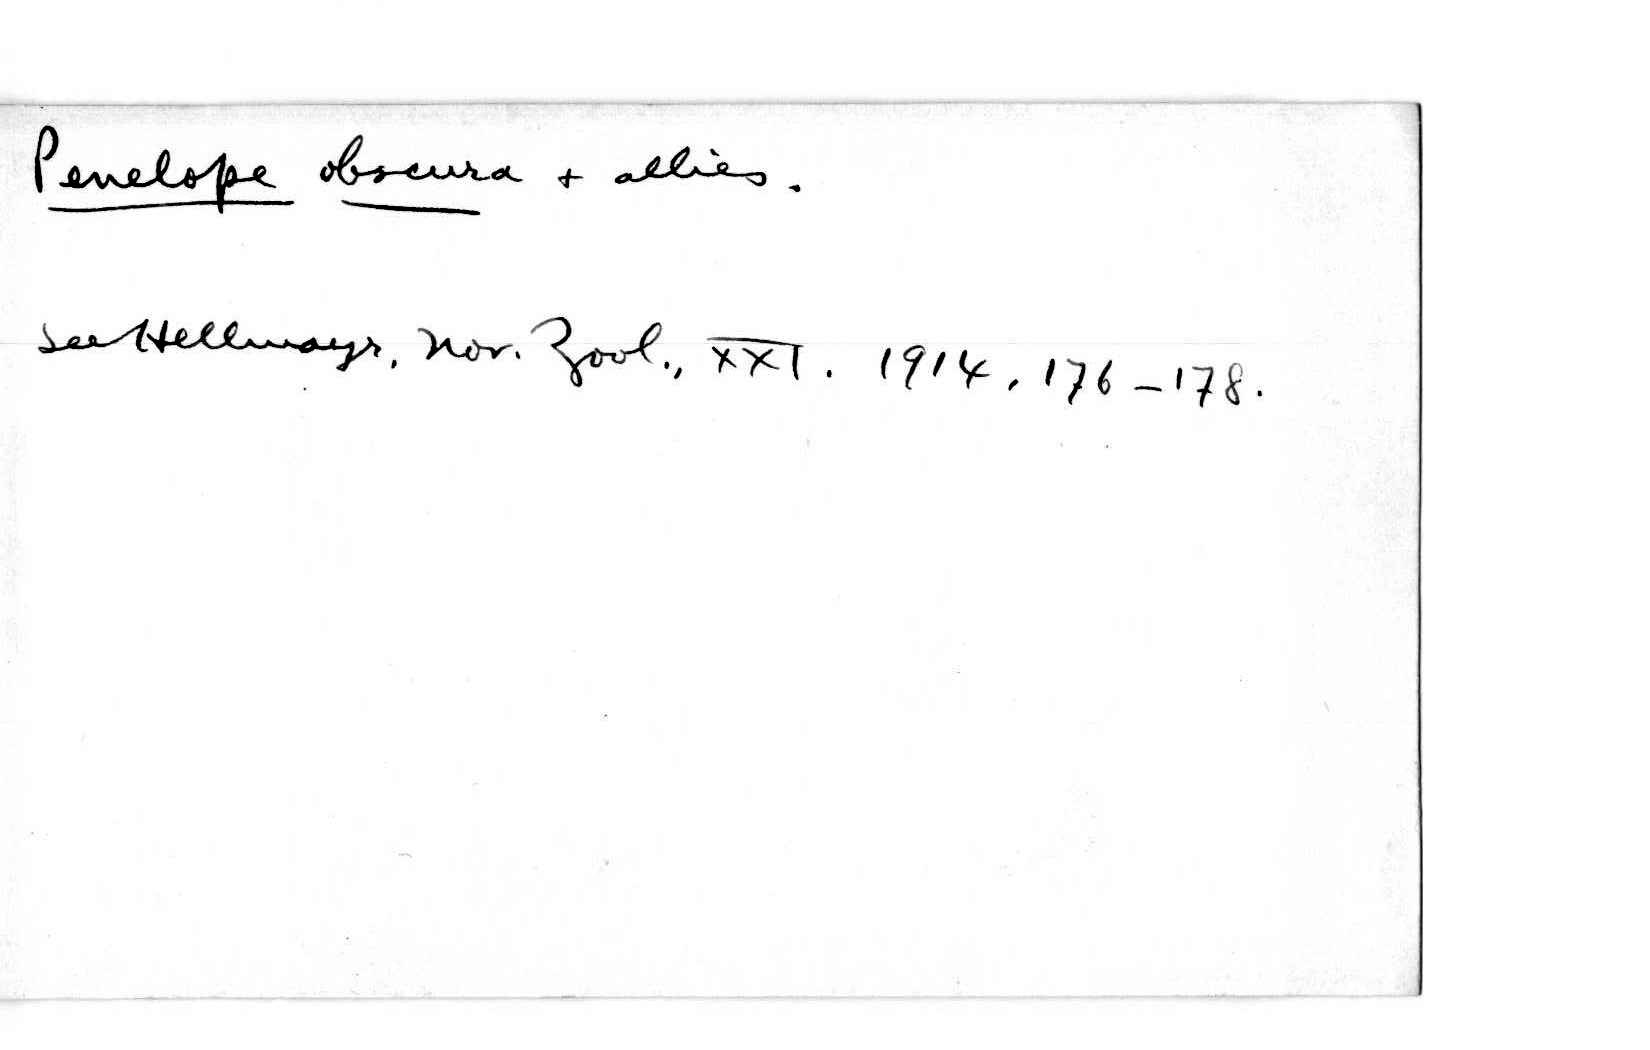 Penelope obscura + allies.
see Hellmayr, Nov. Zool., XXI. 1914, 176-178.